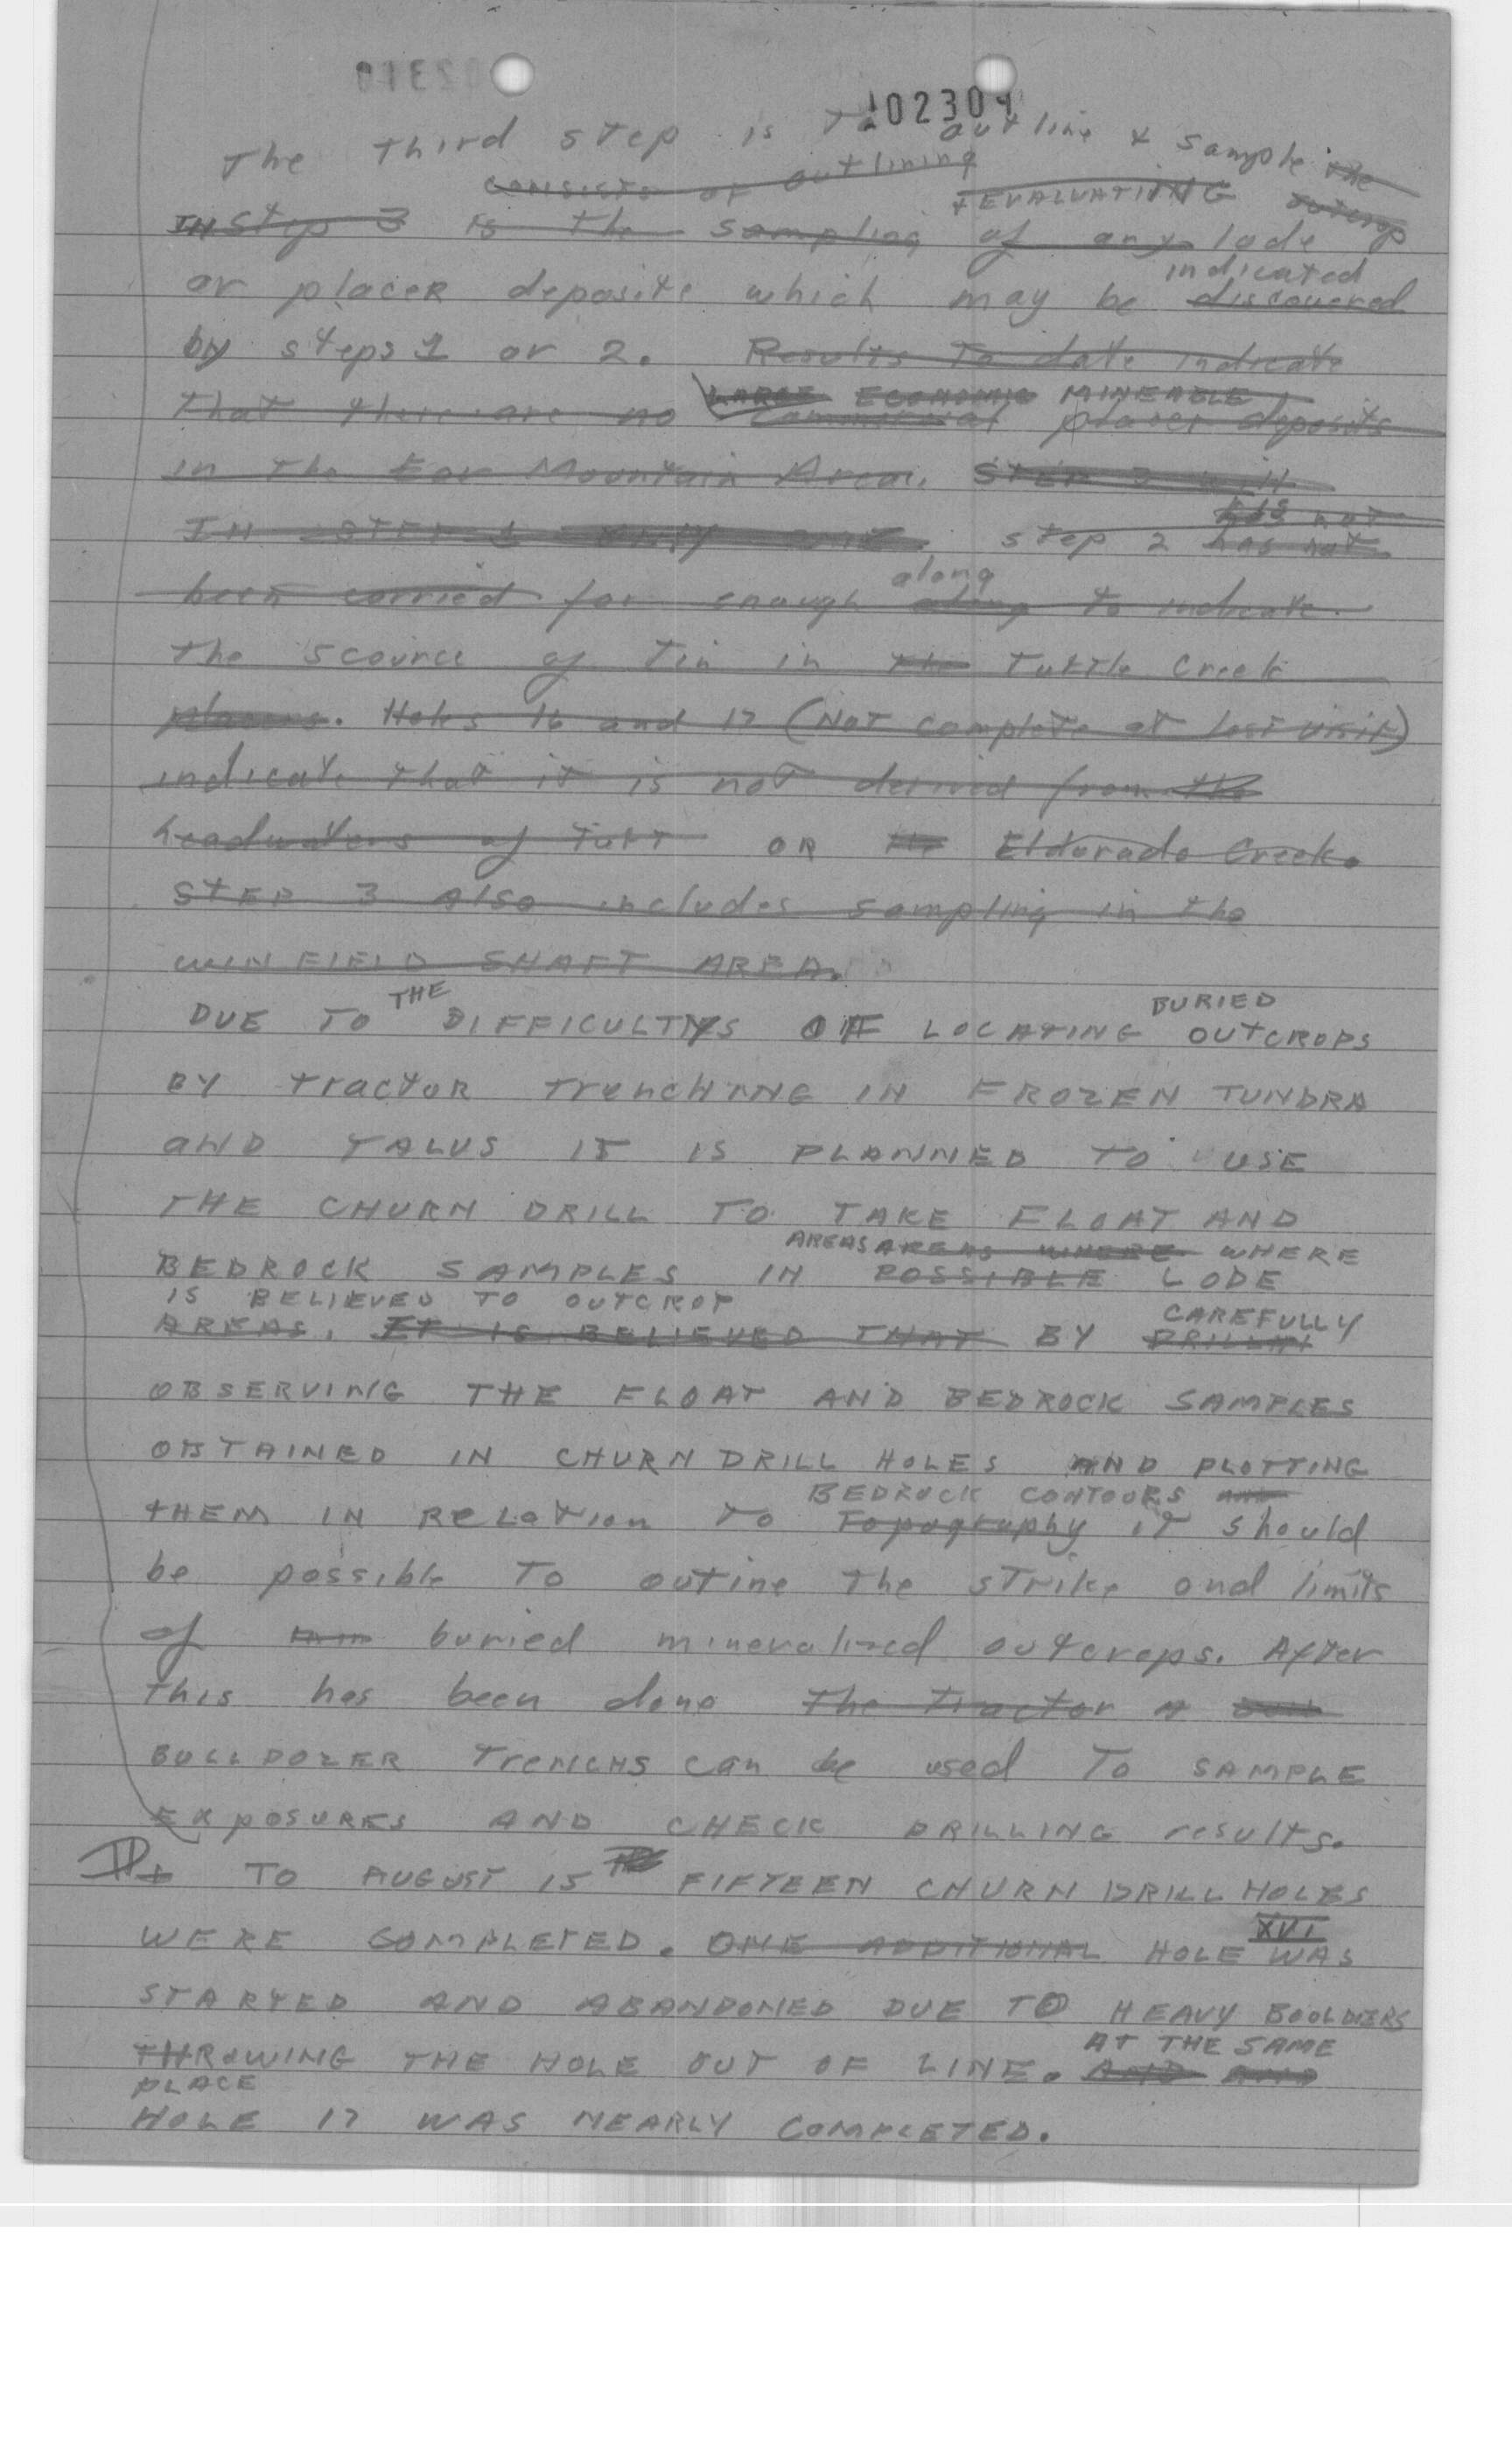 102309
The third step is to outline & sample the
consists of outlining + EVALUATING outcrop
IN Step 3 is the sampling of any lode
indicated
or placer deposits which may be discovered
by steps 1 or 2. Results to date indicate
LARGE ECONOMIC MINEABLE
that there are no commercial placer deposits
in the Ear Mountain Area. STEP 2 will
has not
IN STEP 1 ONLY step 2 has not
along
been carried far enough along to indicate
the scource of Tin in the Tuttle Creek
placers. Holes 16 and 17 (Not complete at last visit)
indicate that it is not derived from the
headwaters of Tutt OR the Eldorado Creek.
STEP 3 also includes sampling in the
WINFIELD SHAFT AREA.
THE BURIED
DUE TO DIFFICULTYS OF LOCATING OUTCROPS
BY tractor trenchING IN FROZEN TUNDRA
AND TALUS IT IS PLANNED TO USE
THE CHURN DRILL TO TAKE FLOAT AND
AREAS AREAS WHERE WHERE
BEDROCK SAMPLES IN POSSIBLE LODE
IS BELIEVED TO OUTCROP CAREFULLY
AREAS. IT IS BELIEVED THAT BY DRILLIN
OBSERVING THE FLOAT AND BEDROCK SAMPLES
OBTAINED IN CHURN DRILL HOLES AND PLOTTING
BEDROCK CONTOURS AND
THEM IN RELation TO Topography it should
be possible To outine The strike and limits
of min buried mineralized outcrops. After
this has been done the tractor a
BULLDOZER TrencHS can be used To SAMPLE
EXPOSURES AND CHECK DRILLING results.
II TO AUGUST 15 TH FIFTEEN CHURN DRILL HOLES
XVI
WERE COMPLETED. ONE ADDITIONAL HOLE WAS
STARTED AND ABANDONED DUE TO HEAVY BOOLDERS
AT THE SAME
THROWING THE HOLE OUT OF LINE. AND AND
PLACE
HOLE 17 WAS NEARLY COMPLETED.